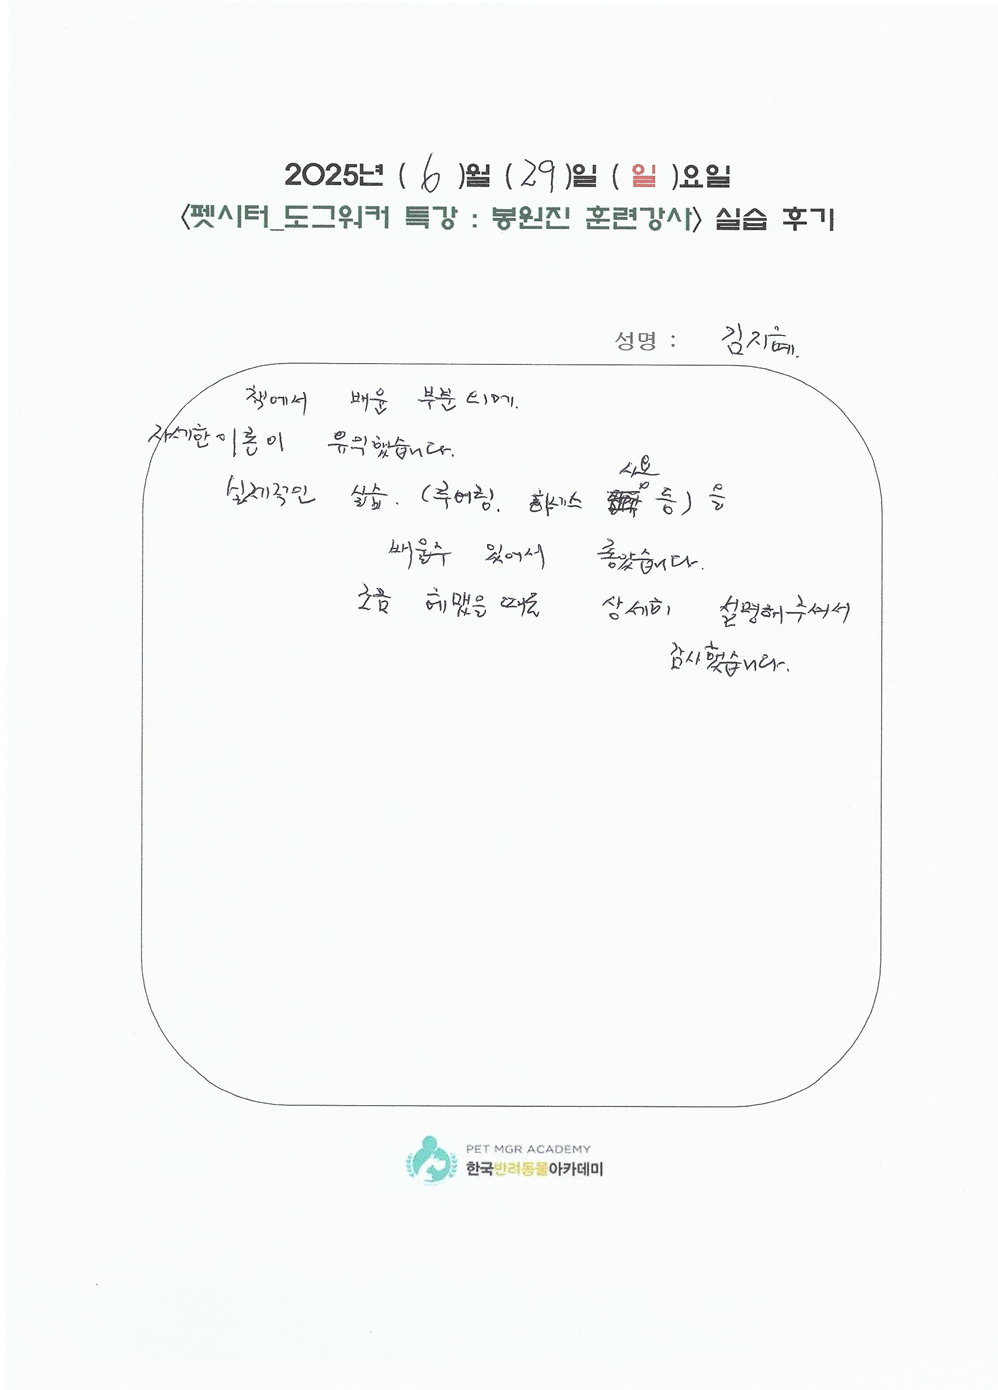 2025년 ( 6 )월 ( 29 )일 ( 일 )요일
<펫시터_도그워커 특강 : 봉원진 훈련강사> 실습 후기
성명 : 김지혜.
책에서 배운 부분 외에.
자세한 이론이 유익했습니다.
사용
실제적인 실습. (루어링. 하네스 등) 을
배울수 있어서 좋았습니다.
조금 헤맸을 때는 상세히 설명해주셔서
감사했습니다.
PET MGR ACADEMY
한국반려동물아카데미